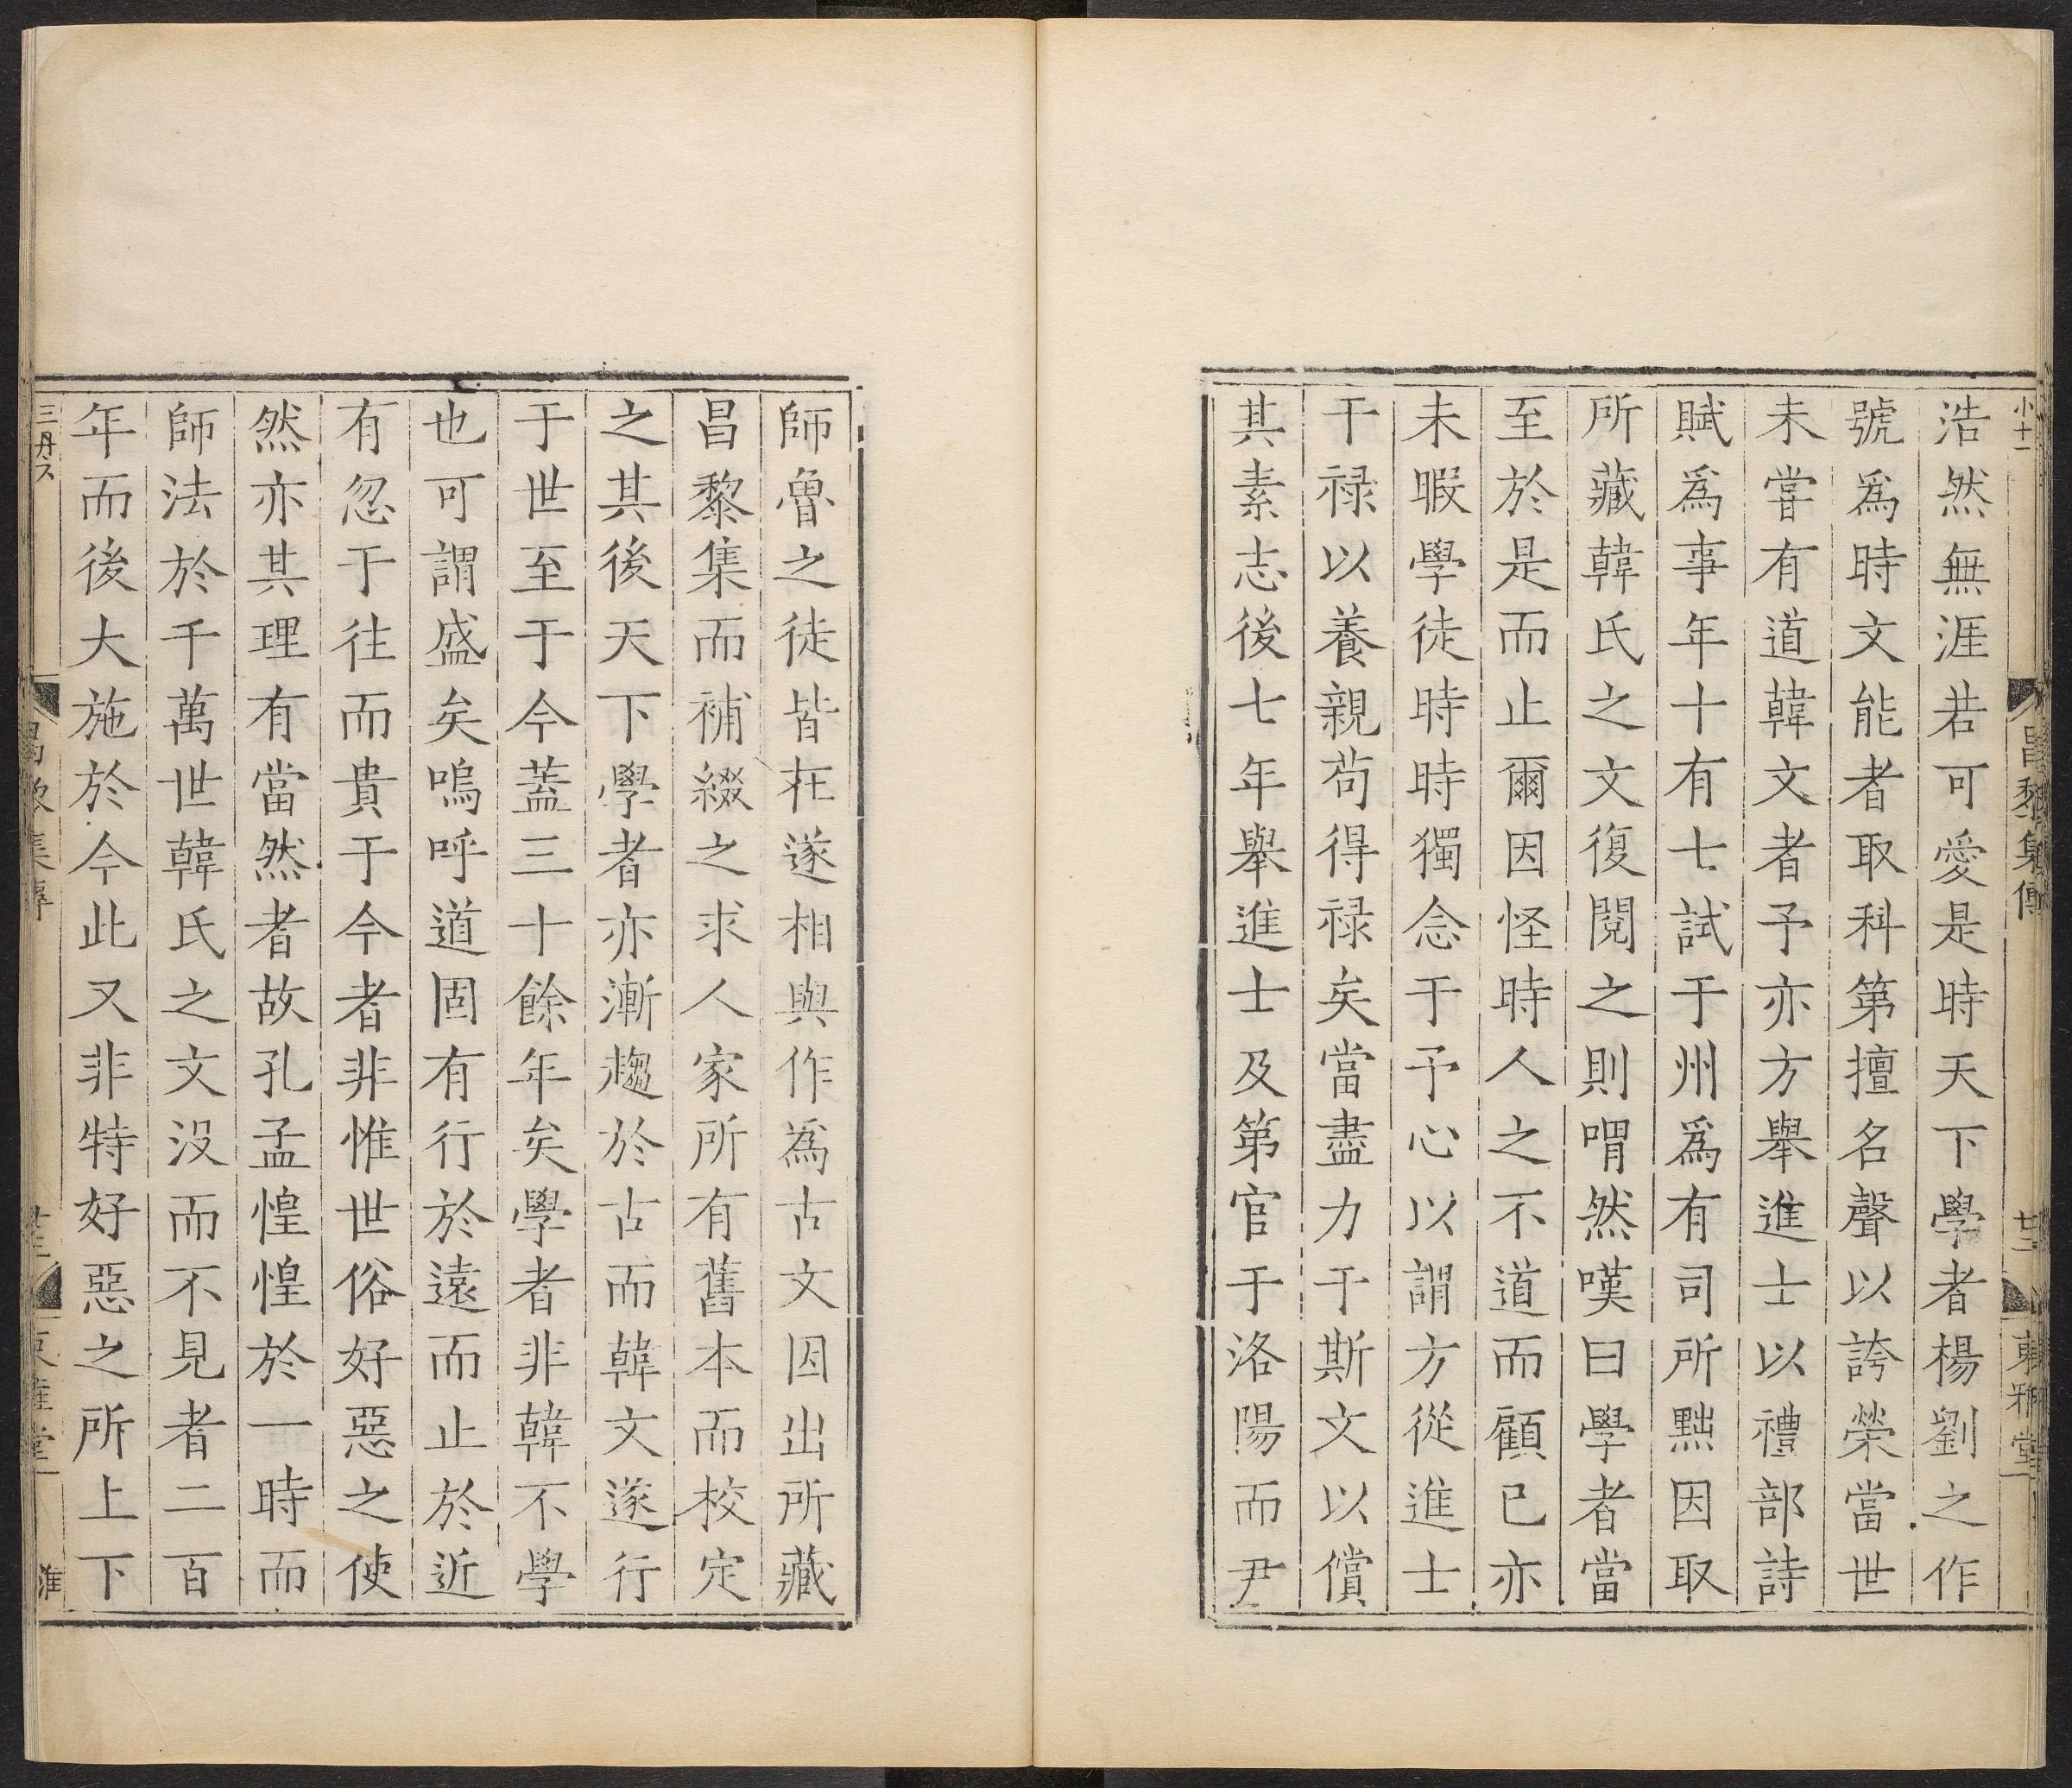 小十一
昌黎集傳
廿二
東雅堂
浩然無涯若可愛是時天下學者楊劉之作
號為時文能者取科第擅名聲以誇榮當世
未嘗有道韓文者予亦方舉進士以禮部詩
賦為事年十有七試于州為有司所黜因取
所藏韓氏之文復閱之則喟然嘆曰學者當
至於是而止爾因怪時人之不道而顧已亦
未暇學徒時時獨念于予心以謂方從進士
干祿以養親苟得祿矣當盡力于斯文以償
其素志後七年舉進士及第官于洛陽而尹
師魯之徒皆在遂相與作為古文因出所藏
昌黎集而補綴之求人家所有舊本而校定
之其後天下學者亦漸趨於古而韓文遂行
于世至于今蓋三十餘年矣學者非韓不學
也可謂盛矣嗚呼道固有行於遠而止於近
有忽于往而貴于今者非惟世俗好惡之使
然亦其理有當然者故孔孟惶惶於一時而
師法於千萬世韓氏之文沒而不見者二百
年而後大施於今此又非特好惡之所上下
昌黎集傳
廿三
東雅堂
淮